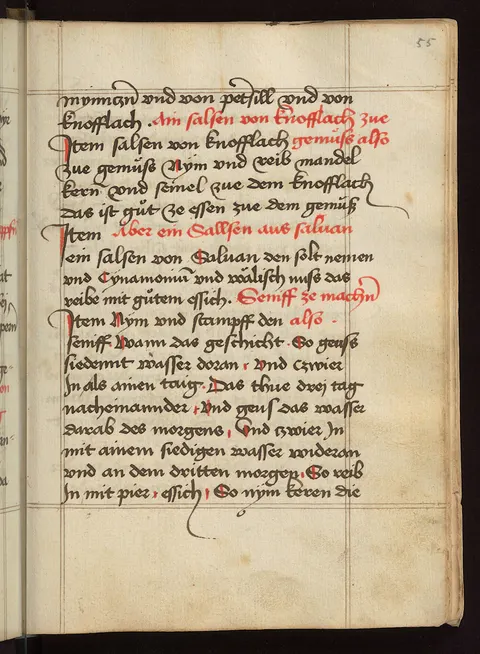 55
mynnczn̄ vnd von pet̓sill vnd von
knofflach . Ain salsen von knofflach zue
Item salsen von knofflach gemüss also
zue gemüss Nym vnd reib mandel
kern̄ vnd semel zue dem knofflach
das ist gůt ze essen zue dem gemüß
Item Aber ein Sallsen aus saluan
ein salsen von Saluan den solt nemen
vnd Cynamomū vnd wälisch nuss das
reibe mit gůtem essich . Seniff ze machn̄
Item Nym vnd stampff den also .
seniff Wann das geschicht . So geuss
siedennt wasser doran , vnd czwier
In als ainen taig . Das thue drej tag
nacheinannder , Vnd geus das wasser
darab des morgens , Vnd czwier In
mit ainem siedigen wasser wideran
vnd an dem dritten morgen . So reib
In mit pier , essich , So nym keren die